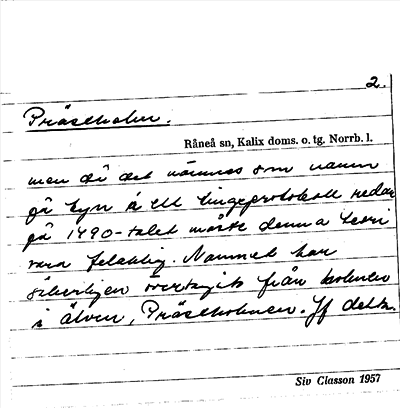 2.
Prästholm.
Råneå sn, Kalix doms. o. tg. Norrb. l.
men då det nämnes som namn
på byn i ett tingsprotokoll redan
på 1490-talet måste denna teori
vara felaktig. Namnet har
säkerligen övertagits från holmen
i älven, Prästholmen. Jf detta.
Siv Classon 1957